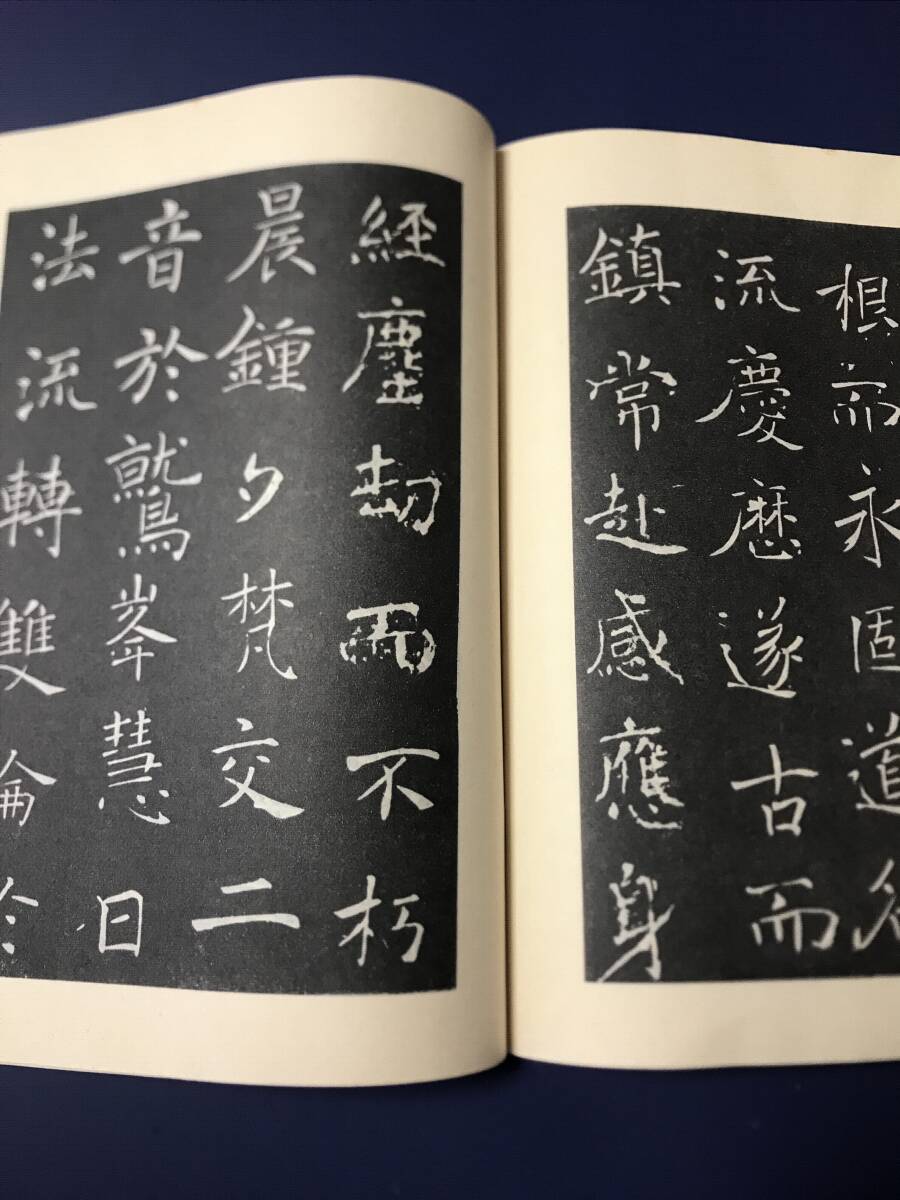 根而永固道名
流慶歷遂古而
鎮常赴感應身
經塵劫而不朽
晨鍾夕梵交二
音於鷲峯慧日
法流轉雙輪於